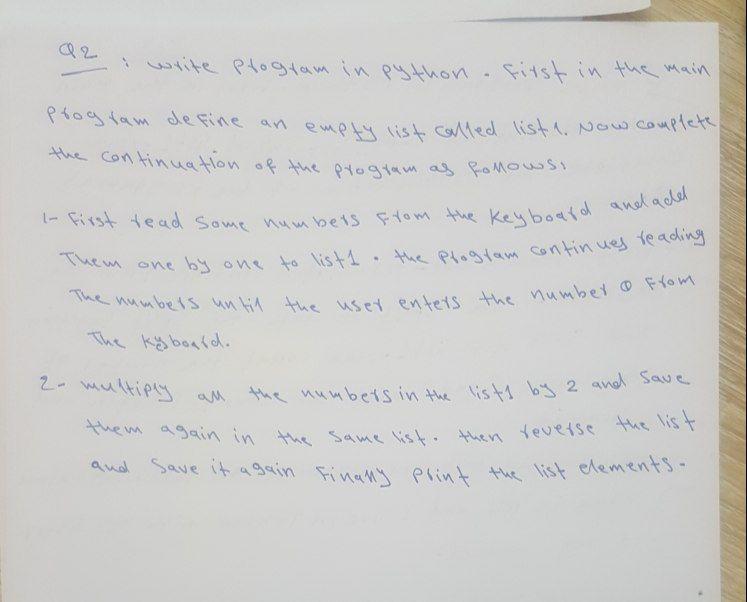 Q2 : write program in python. First in the main
program define an empty list called list1. Now complete
the continuation of the program as follows:
1- First read some numbers from the keyboard and add
Them one by one to list1. the program continues reading
The numbers until the user enters the number 0 From
The keyboard.
2- multiply all the numbers in the list1 by 2 and save
them again in the same list. then reverse the list
and save it again Finally print the list elements.